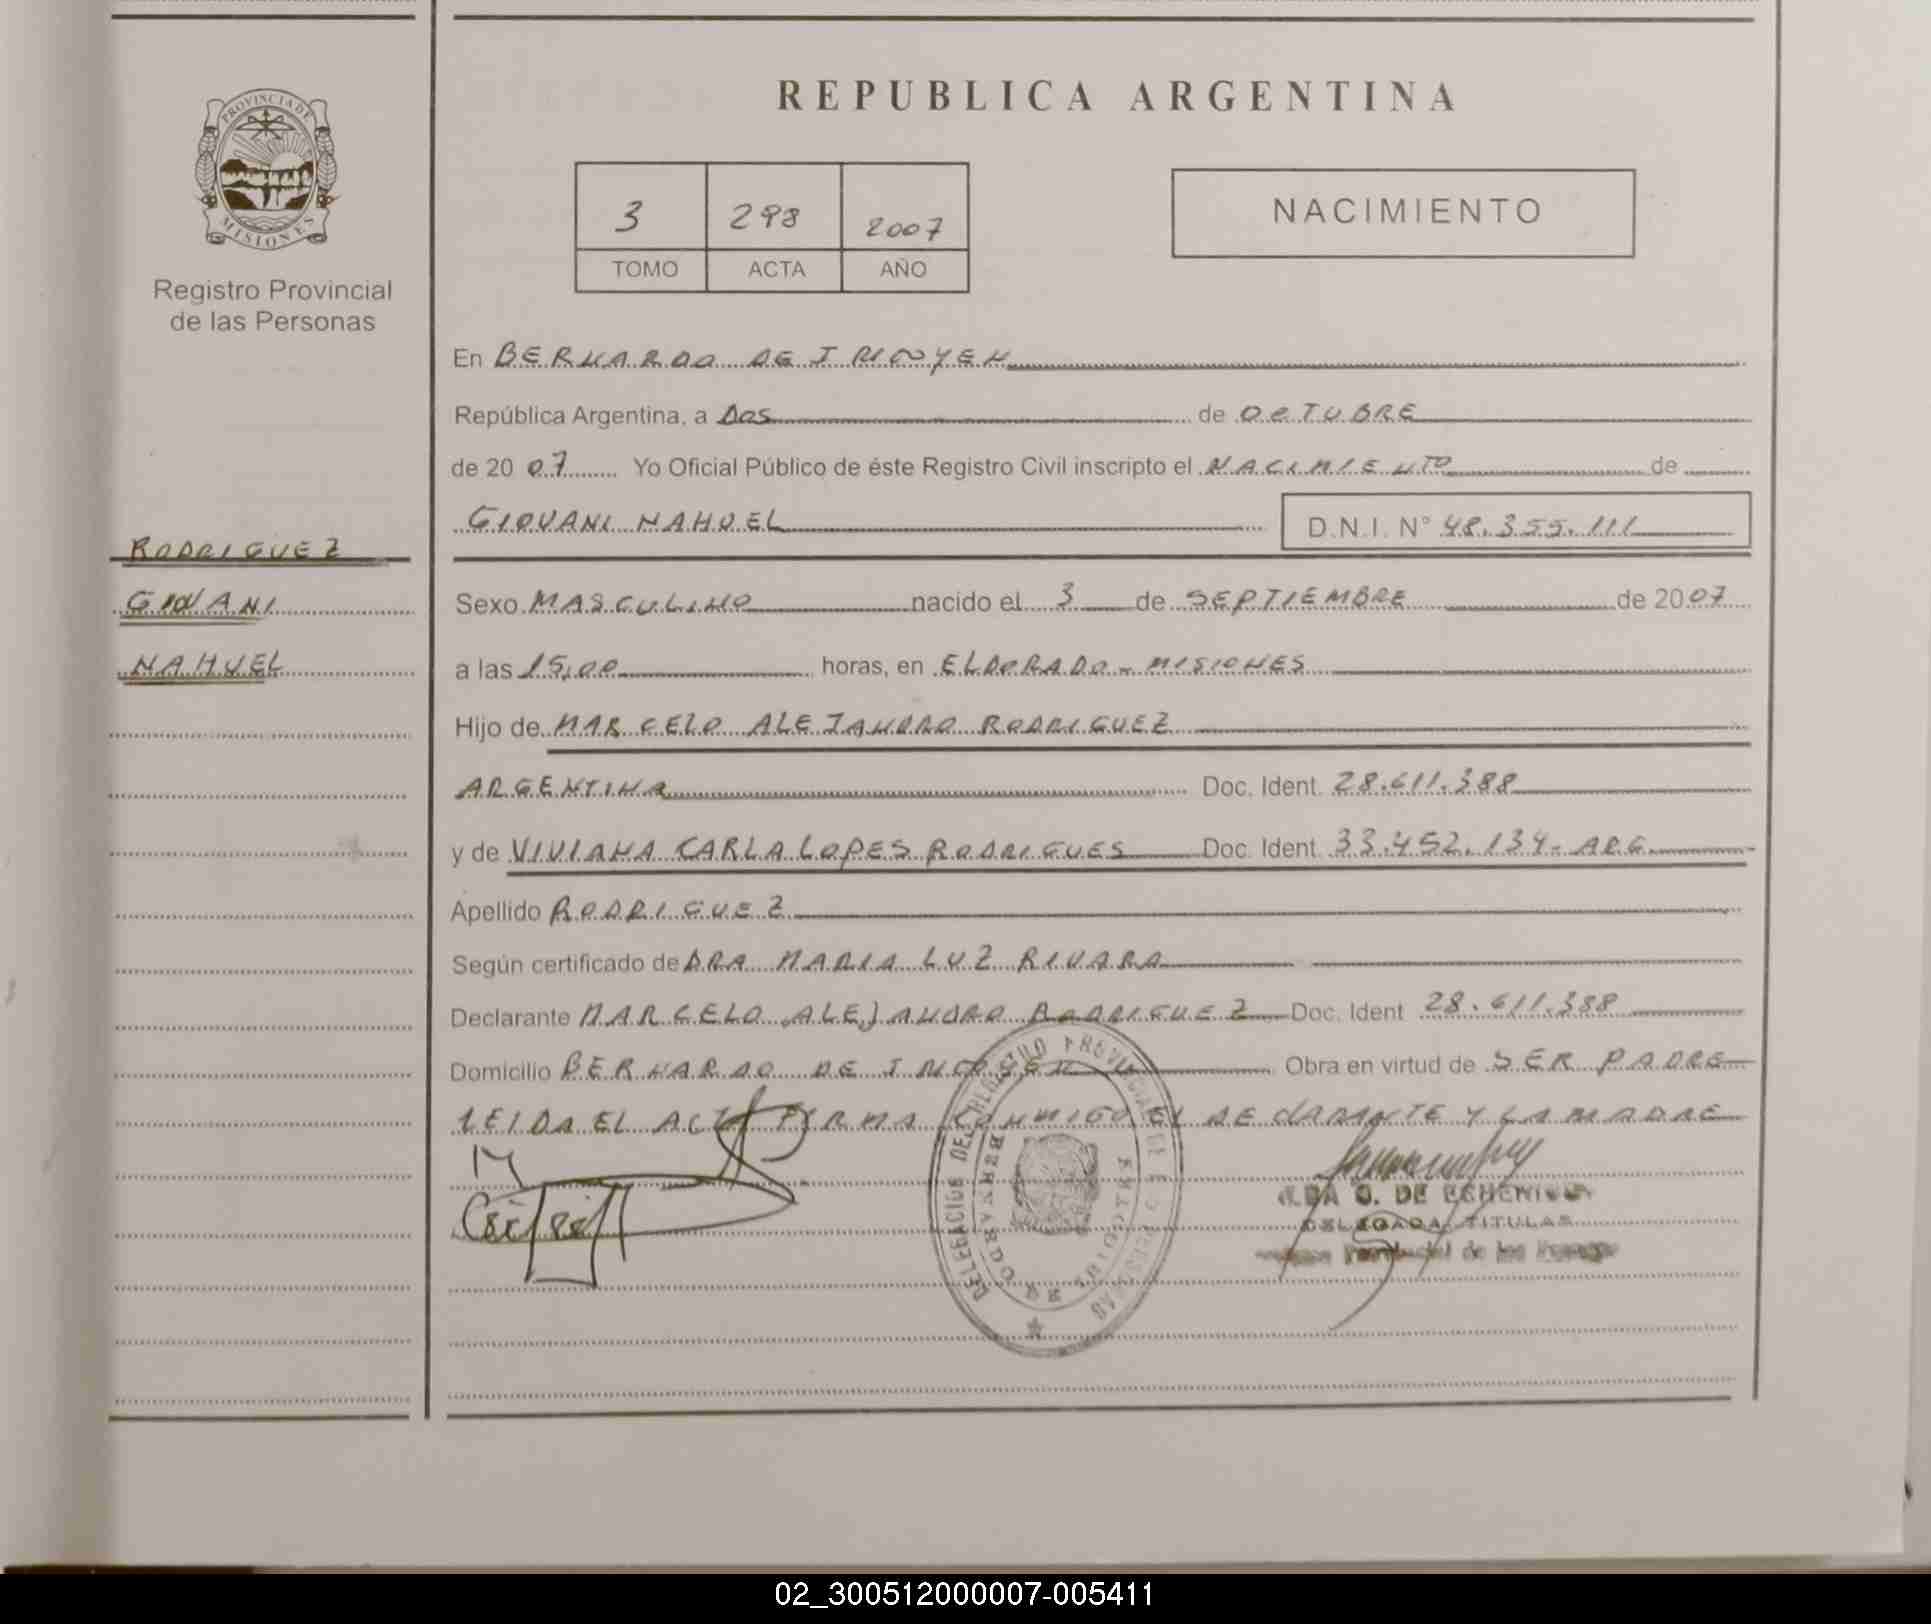 PROVINCIA DE
MISIONES
Registro Provincial
de las Personas
RODRIGUEZ
GIOVANI
NAHUEL
REPUBLICA ARGENTINA
3 298 2007
TOMO ACTA AÑO
NACIMIENTO
En BERNARDO DE IRIGOYEN
República Argentina, a DOS de OCTUBRE
de 20 07 Yo Oficial Público de éste Registro Civil inscripto el NACIMIENTO de
GIOVANI NAHUEL D.N.I. N° 48.355.111
Sexo MASCULINO nacido el 3 de SEPTIEMBRE de 2007
a las 15,00 horas, en ELDORADO - MISIONES
Hijo de MARCELO ALEJANDRO RODRIGUEZ
ARGENTINA Doc. Ident. 28.611.388
y de VIVIANA CARLA LOPES RODRIGUES Doc. Ident. 33.452.134- ARG.
Apellido RODRIGUEZ
Según certificado de DRA MARIA LUZ RIVARA
Declarante MARCELO ALEJANDRO RODRIGUEZ Doc. Ident 28.611.388
Domicilio BERNARDO DE IRIGOYEN Obra en virtud de SER PADRE
LEIDA EL ACTA FIRMA CONMIGO EL DECLARANTE Y LA MADRE
DELEGACION DEL REGISTRO PROVINCIAL DE LAS PERSONAS
BERNARDO DE
O. DE
DELEGADA TITULAR
Provincial de las
02_300512000007-005411